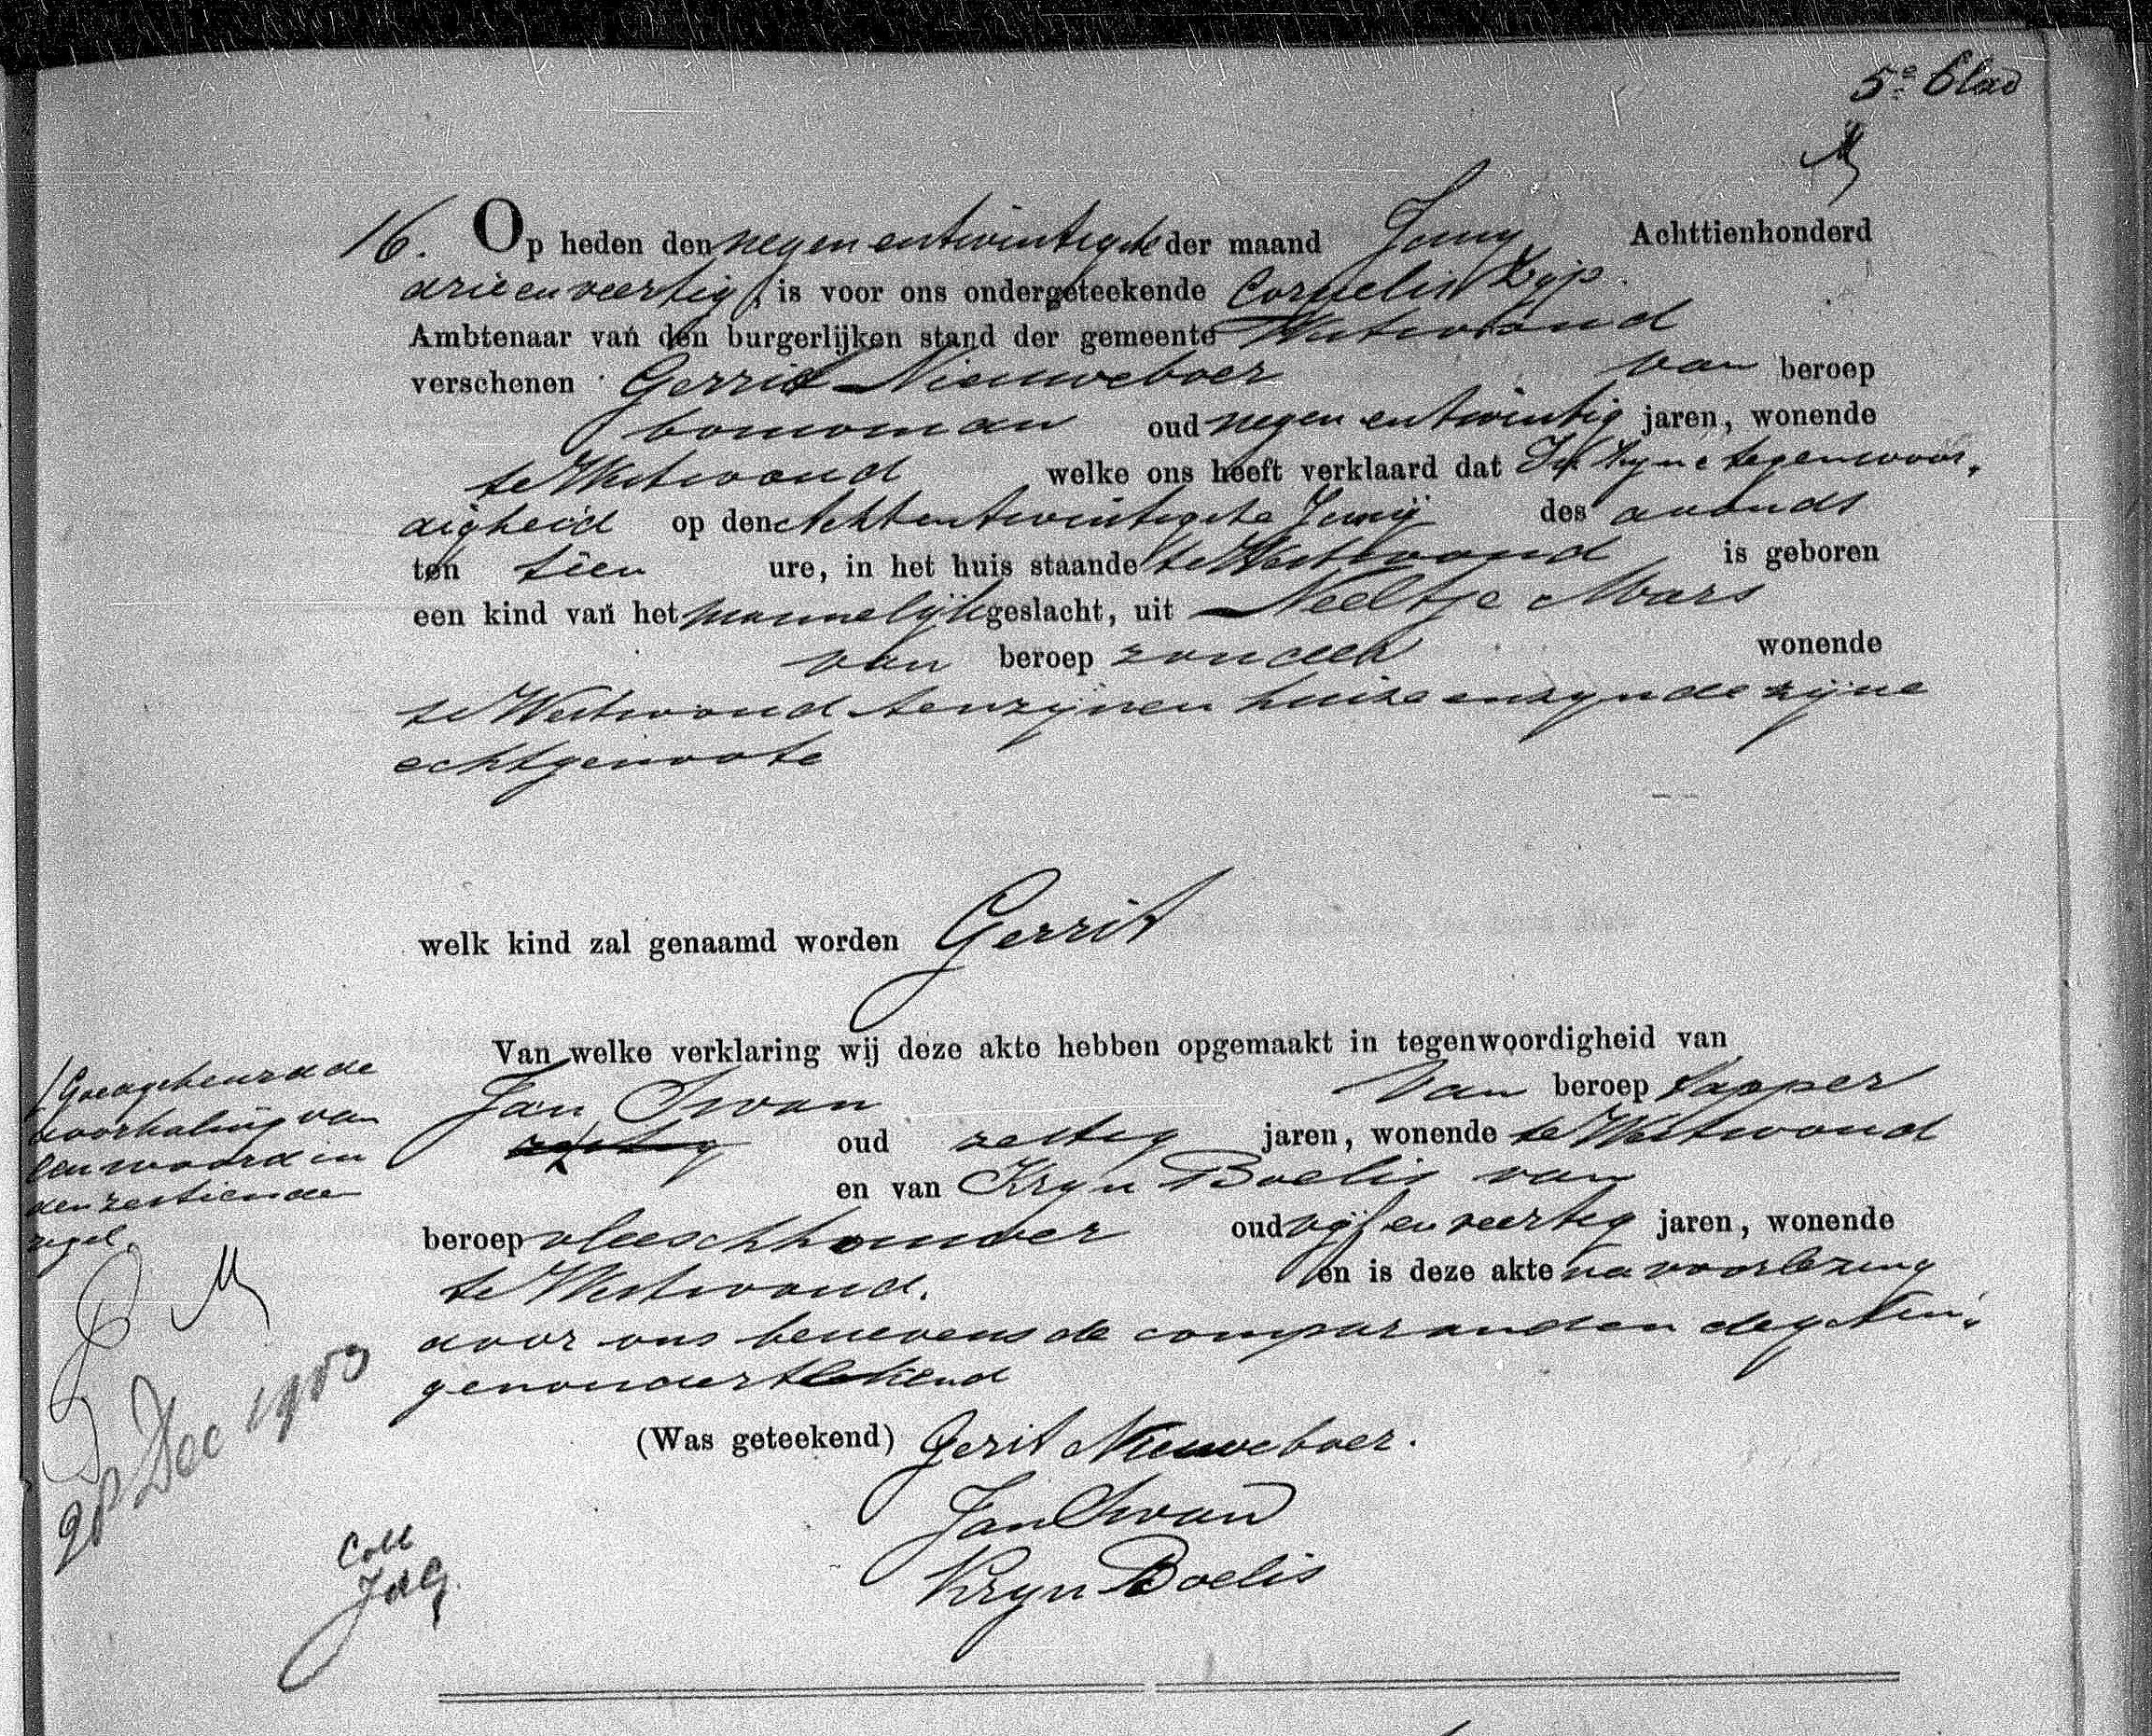 5e Blad
16. Op heden den negenentwintigste der maand Junij Achttienhonderd
drieenveertig, is voor ons ondergeteekende Cornelis Zijp
Ambtenaar van den burgerlijken stand der gemeente Westwoud
verschenen Gerrit Nieuweboer van beroep
bouwman oud negenentwintig jaren, wonende
te Westwoud welke ons heeft verklaard dat In zijne tegenwoor-
digheid op den Achtentwintigste Junij des avonds
ten tien ure, in het huis staande te Westwoud is geboren
een kind van het mannelijk geslacht, uit Neeltje Mars
van beroep zonder wonende
te Westwoud ten zijnen huize en zijnde zijne
echtgenoote
welk kind zal genaamd worden Gerrit
Van welke verklaring wij deze akte hebben opgemaakt in tegenwoordigheid van
Jan Swan van beroep tapper
oud zestig jaren, wonende te Westwoud
en van Kryn Boelis van
beroep vleeschhouwer oud vijfenveertig jaren, wonende
te Westwoud. en is deze akte na voorlezing
door ons benevens de comparanden de getui-
gen onderteekend
(Was geteekend) Gerit Nieuweboer.
Jan Swan
Kryn Boelis
/ Goedgekeurd de
doorhaling van
een woord in
den zestiende
regel.
Dec 1903
Coll